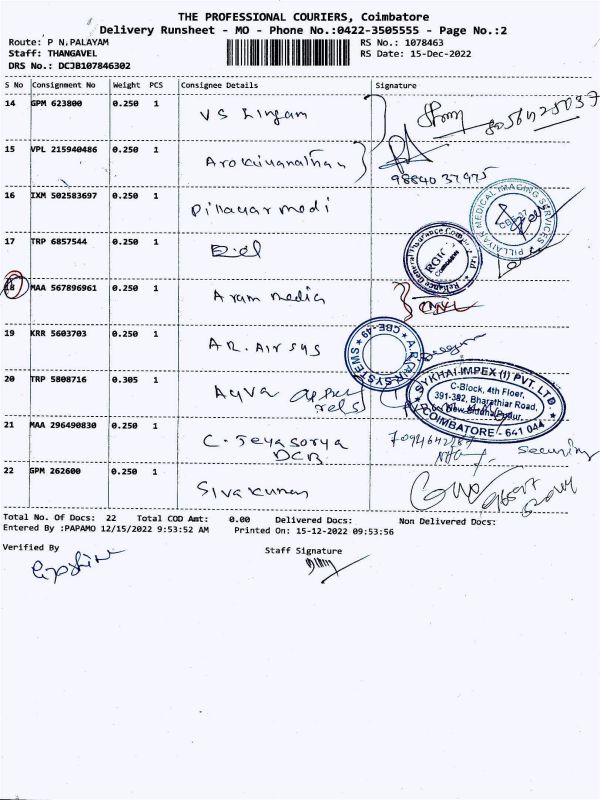 THE PROFESSIONAL COURIERS, Coimbatore
Delivery Runsheet - MO - Phone No.:0422-3505555 - Page No.:2
Route: P N.PALAYAM
RS No.: 1078463
Staff: THANGAVEL
RS Date: 15-Dec-2022
DRS No.: DCJB107846302
S No Consignment No Weight PCS Consignee Details Signature
14 GPM 623800 0.250 1 VS Lingam
15 VPL 215940486 0.250 1 Arokiyanathan
16 IXM 502583697 0.250 1 Pillayar medi
PILLAIYAR MEDICAL IMAGING SERVICES
17 TRP 6857544 0.250 1
Reliance General Insurance Company Ltd
RGICL
COIMBATORE
18 MAA 567896961 0.250 1 Aram media
19 KRR 5603703 0.250 1 AR. Air sys
A.R. AIR SYSTEMS
CBE-49
20 TRP 5808716 0.305 1 Aqva
SYKHAI IMPEX (I) PVT. LTD.
C-Block, 4th Floor,
391-382, Bharathiar Road,
COIMBATORE - 641 044
21 MAA 296490830 0.250 1 C. Jeyasorya
DCB
Security
22 GPM 262600 0.250 1 Sivakumar
Total No. Of Docs: 22 Total COD Amt: 0.00 Delivered Docs: Non Delivered Docs:
Entered By :PAPAMO 12/15/2022 9:53:52 AM Printed On: 15-12-2022 09:53:56
Verified By
Staff Signature